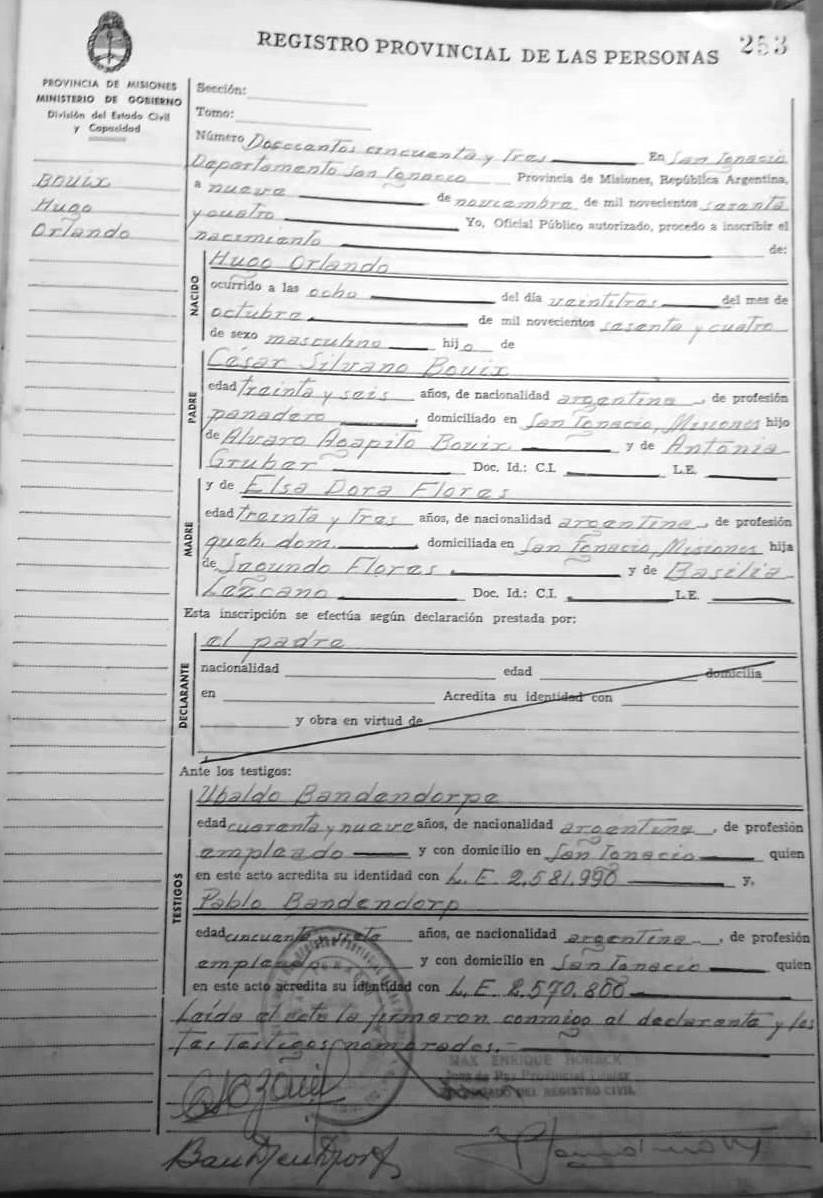 REGISTRO PROVINCIAL DE LAS PERSONAS 253
PROVINCIA DE MISIONES
MINISTERIO DE GOBIERNO
División del Estado Civil
y Capacidad
Bouix
Hugo
Orlando
Sección:
Tomo:
Número Doscientos cincuenta y tres En San Ignacio
Departamento San Ignacio Provincia de Misiones, República Argentina,
a nueve de noviembre de mil novecientos sesenta
y cuatro Yo, Oficial Público autorizado, procedo a inscribir el
nacimiento de:
NACIDO
Hugo Orlando
ocurrido a las ocho del día veintitres del mes de
octubre de mil novecientos sesenta y cuatro
de sexo masculino hijo de
PADRE
César Silvano Bouix
edad treinta y seis años, de nacionalidad argentina, de profesión
panadero, domiciliado en San Ignacio, Misiones hijo
de Alvaro Agapito Bouix y de Antonia
Gruber Doc. Id.: C.I. L.E.
MADRE
y de Elsa Dora Flores
edad treinta y tres años, de nacionalidad argentina, de profesión
queh. dom. domiciliada en San Ignacio, Misiones hija
de Segundo Flores y de Basilia
Lezcano Doc. Id.: C.I. L.E.
Esta inscripción se efectúa según declaración prestada por:
DECLARANTE
el padre
nacionalidad edad domicilia
en Acredita su identidad con
y obra en virtud de
Ante los testigos:
TESTIGOS
Ubaldo Bandendorpe
edad cuarenta y nueve años, de nacionalidad argentina, de profesión
empleado y con domicilio en San Ignacio quien
en este acto acredita su identidad con L.E. 2.581.990 y,
Pablo Bandendorp
edad cincuenta y siete años, de nacionalidad argentina, de profesión
empleado y con domicilio en San Ignacio quien
en este acto acredita su identidad con L.E. 2.570.800
Leída el acta la firmaron conmigo el declarante y los
testigos nombrados.-
MAX ENRIQUE HORACK
Juez de Paz Provincial
DEL REGISTRO CIVIL